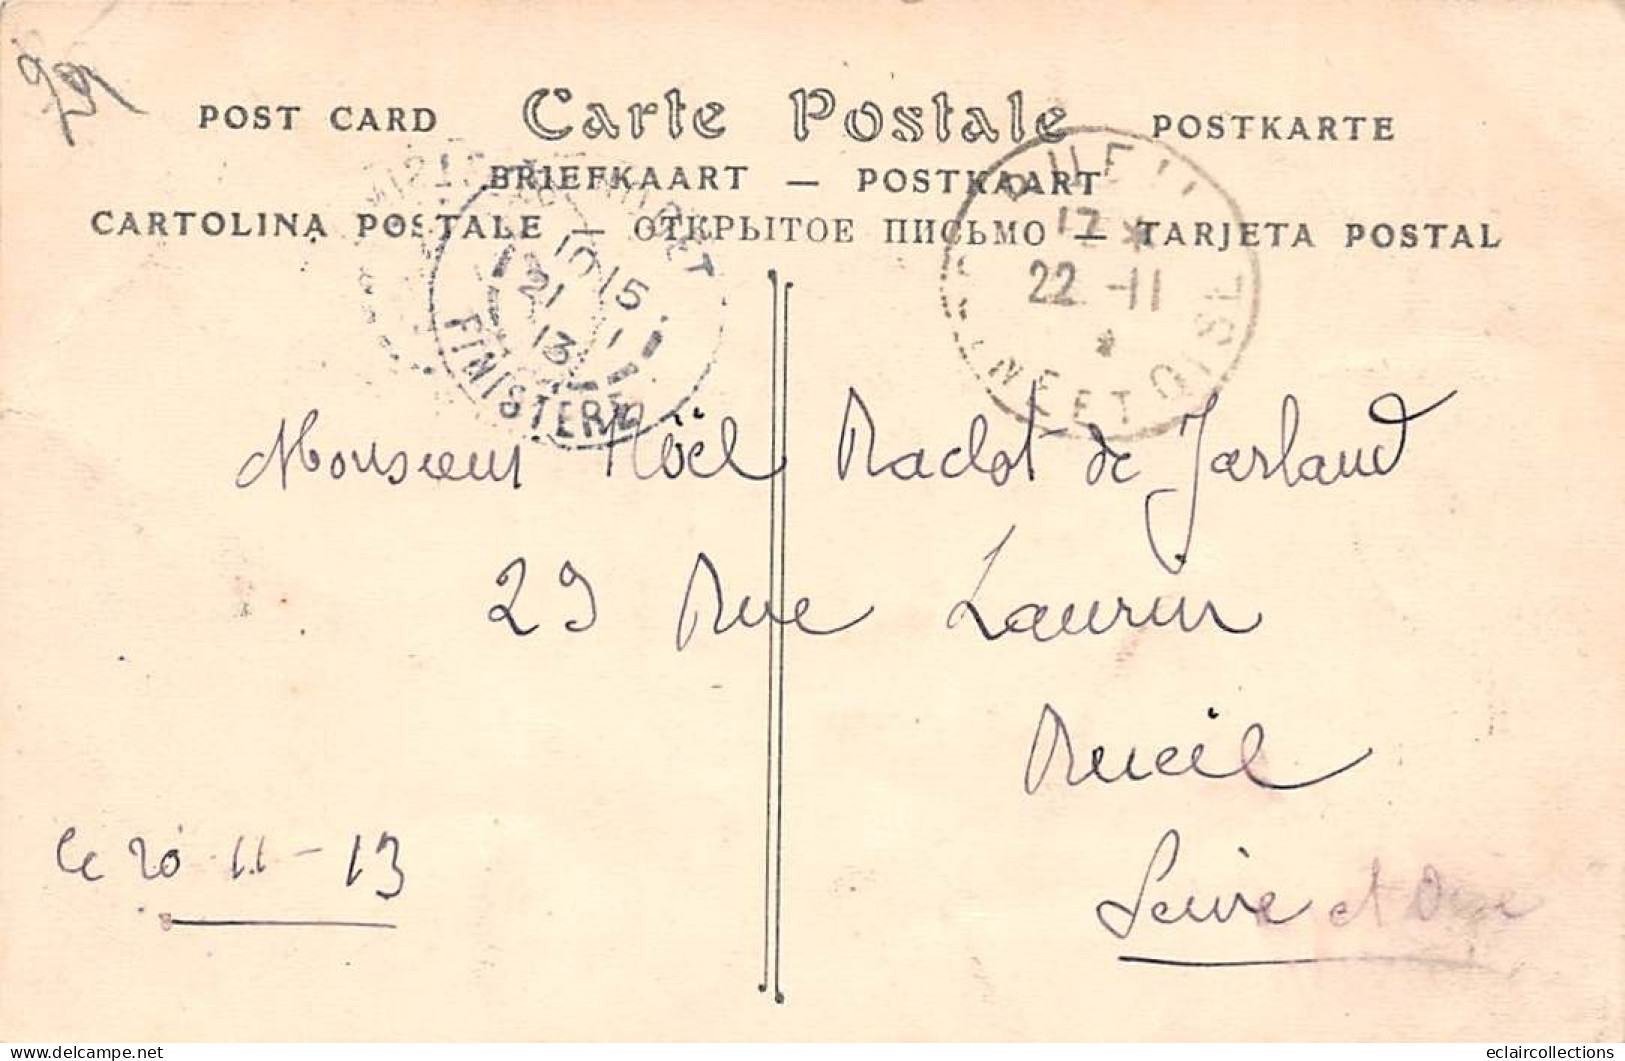 29
POST CARD Carte Postale POSTKARTE
BRIEFKAART — POSTKAART
CARTOLINA POSTALE — ОТКРЫТОЕ ПИСЬМО — TARJETA POSTAL
10 15
21 11
13
FINISTERE
RUEIL
17 *
22 -11
*
SEINE ET OISE
Monsieur Noël Raclot de Jarland
29 Rue Laurin
Rueil
Seine et Oise
le 20 11 - 13
eclaircollections